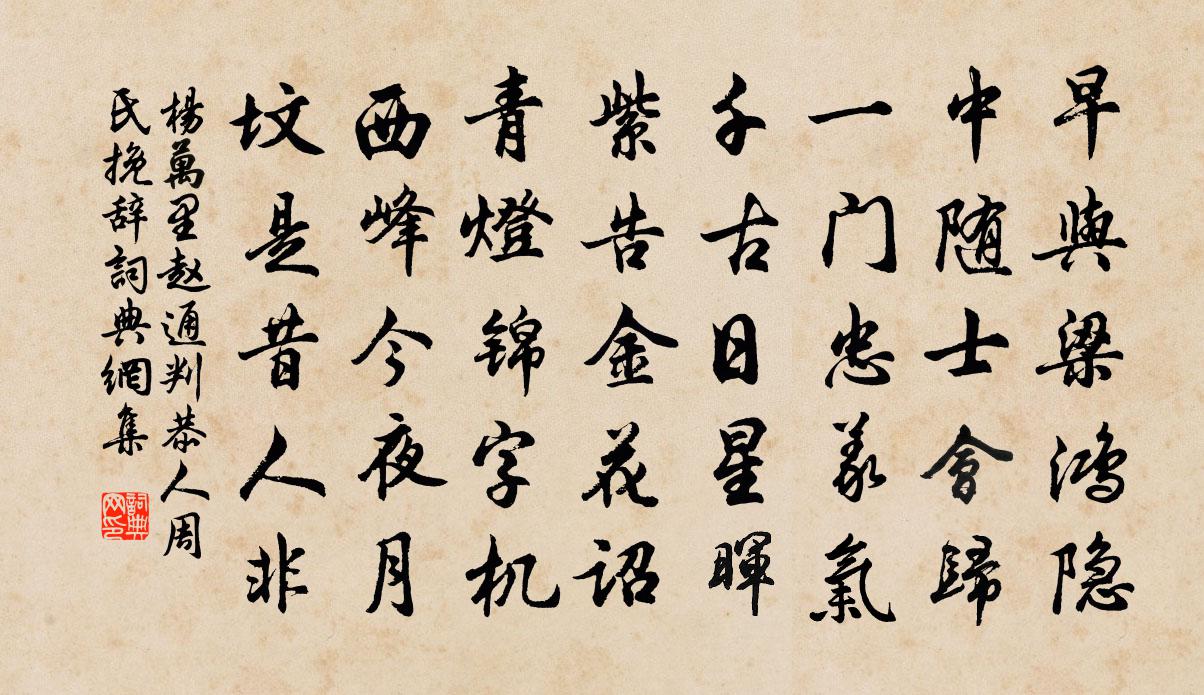 早與梁鴻隐
中随士會歸
一门忠義氣
千古日星暉
紫告金花詔
青燈錦字机
西峰今夜月
坟是昔人非
楊萬里赵通判恭人周
氏挽辞詞典網集
詞典网印